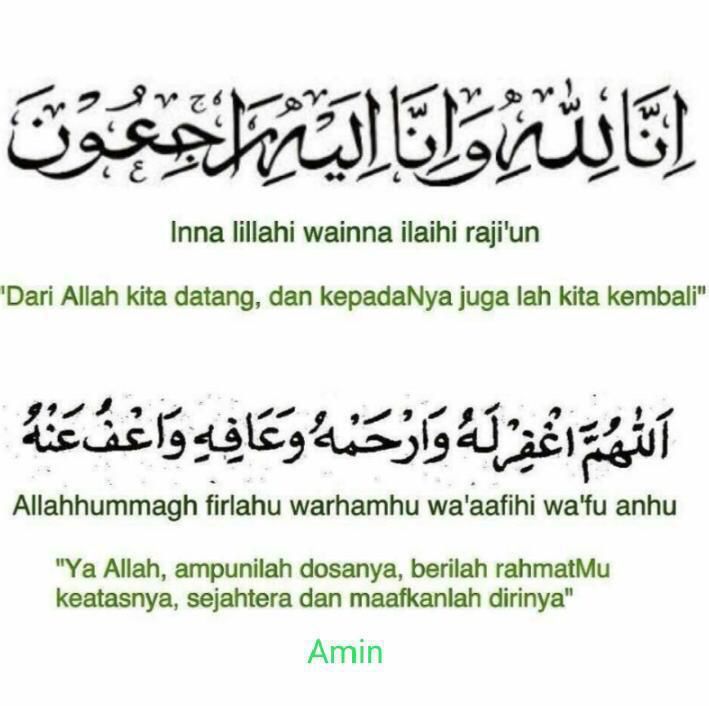 اِنَّا لِلّٰهِ وَاِنَّا اِلَيْهِ رَاجِعُوْنَ
Inna lillahi wainna ilaihi raji'un
"Dari Allah kita datang, dan kepadaNya juga lah kita kembali"
اَللّٰهُمَّ اغْفِرْ لَهُ وَارْحَمْهُ وَعَافِهِ وَاعْفُ عَنْهُ
Allahhummagh firlahu warhamhu wa'aafihi wa'fu anhu
"Ya Allah, ampunilah dosanya, berilah rahmatMu
keatasnya, sejahtera dan maafkanlah dirinya"
Amin